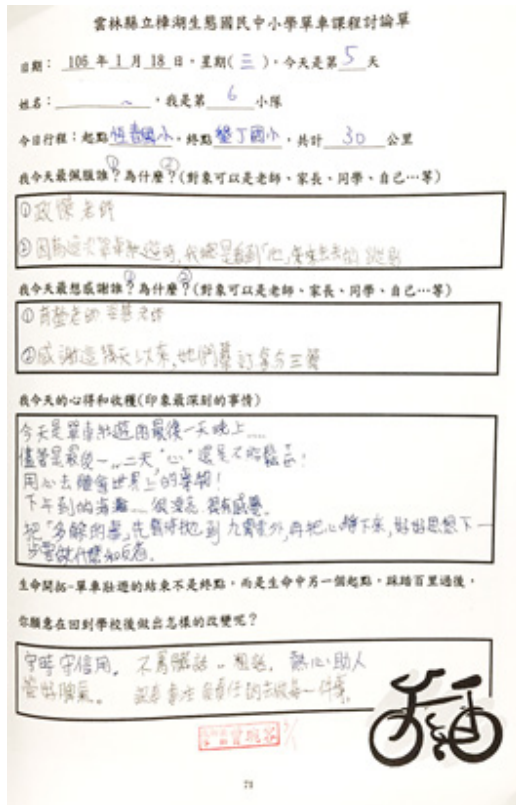 雲林縣立樟湖生態國民中小學單車課程討論單
日期： 106 年 1 月 18 日，星期( 三 )，今天是第 5 天
姓名： ，我是第 6 小隊
今日行程：起點 恆春國小，終點 墾丁國小，共計 30 公里
① ②
我今天最佩服誰？為什麼？(對象可以是老師、家長、同學、自己…等)
① 政傑老師
② 因為這次單車壯遊時，我總是看到「他」來來去去的
① ②
我今天最想感謝誰？為什麼？(對象可以是老師、家長、同學、自己…等)
① 老師 老師
② 感謝這幾天以來，她們幫訂 三餐
我今天的心得和收穫(印象最深刻的事情)
今天是單車壯遊的最後一天晚上……
儘管是最後一..二天"心"還是不能鬆
用心去體會世界上的事物！
下午到的海灘…很漂亮 很有感覺。
把"多餘的 "先暫時拋到九霄雲外，再把心靜下來，好好思想下一
步要做什麼和
生命開拓-單車壯遊的結束不是終點，而是生命中另一個起點，踩踏百里過後，
你願意在回到學校後做出怎樣的改變呢？
守時守信用。 不罵髒話、粗話。 熱心助人
管好脾氣。 負責任的去做每一件事。
73